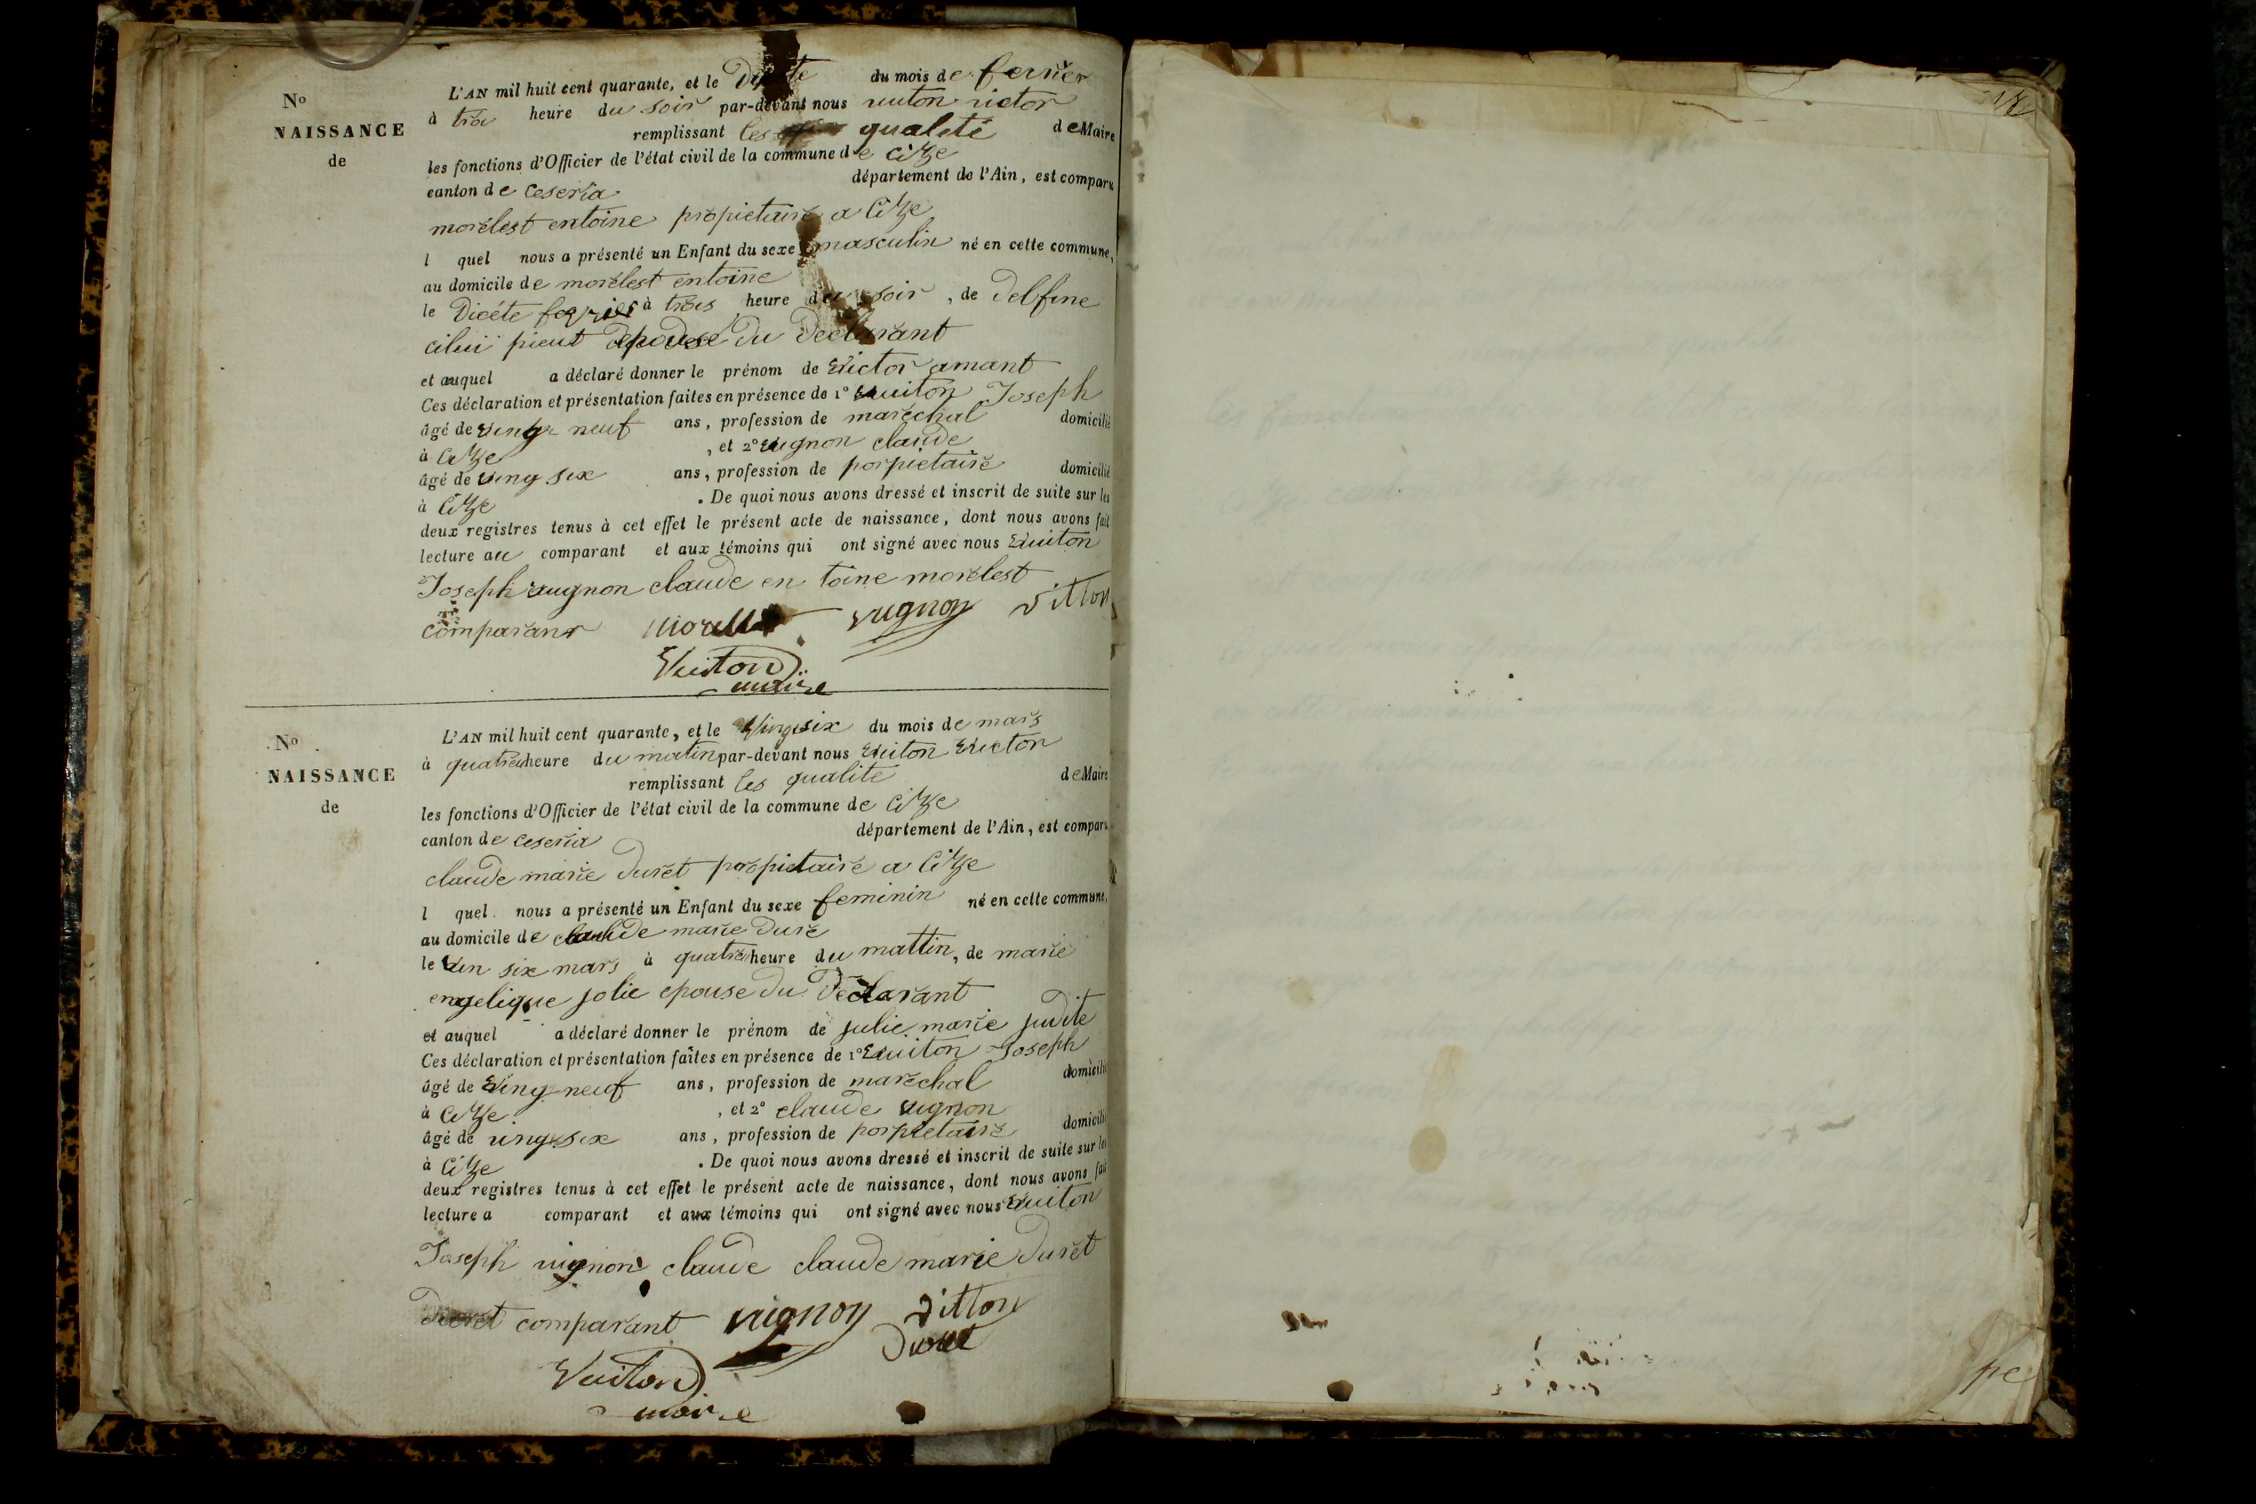 L'AN mil huit cent quarante, et le du mois de fevrier
N° à trois heure du soir par-devant nous vuiton victor
NAISSANCE remplissant les qualité de Maire
de les fonctions d'Officier de l'état civil de la commune de Cize
canton de ceseria département de l'Ain, est comparu
morélest entoine propietaire a Cize
l quel nous a présenté un Enfant du sexe masculin né en cette commune,
au domicile de morélest entoine
le Dicéte fevrier à trois heure du soir, de Delfine
épousé du Declarant
et auquel a déclaré donner le prénom de victor amant
Ces déclaration et présentation faites en présence de 1° vuiton Joseph
âgé de ving neuf ans, profession de maréchal domicilié
à Cize, et 2° vugnon claude
âgé de ving six ans, profession de porpietaire domicilié
à Cize. De quoi nous avons dressé et inscrit de suite sur les
deux registres tenus à cet effet le présent acte de naissance, dont nous avons fait
lecture au comparant et aux témoins qui ont signé avec nous vuiton
Joseph vugnon claude en toine morélest
comparant vugnon vitton
Vuiton
maire
L'AN mil huit cent quarante, et le Vingsix du mois de mars
N° à quatre heure du matin par-devant nous vuiton victor
NAISSANCE remplissant les qualité de Maire
de les fonctions d'Officier de l'état civil de la commune de Cize
canton de ceseria département de l'Ain, est comparu
claude marie Duret propietaire a Cize
l quel nous a présenté un Enfant du sexe feminin né en cette commune,
au domicile de claude marie Duré
le vin six mars à quatre heure du mattin, de marie
engelique jolie epouse du Déclarant
et auquel a déclaré donner le prénom de julie marie judite
Ces déclaration et présentation faites en présence de 1° vuiton Joseph
âgé de ving neuf ans, profession de maréchal domicilié
à Cize, et 2° claude vignon
âgé de ving six ans, profession de porpietaire domicilié
à Cize. De quoi nous avons dressé et inscrit de suite sur les
deux registres tenus à cet effet le présent acte de naissance, dont nous avons fait
lecture a comparant et aux témoins qui ont signé avec nous vuiton
Joseph vignon claude claude marie Duret
comparant vugnon vitton
Duret
Vuiton
maire